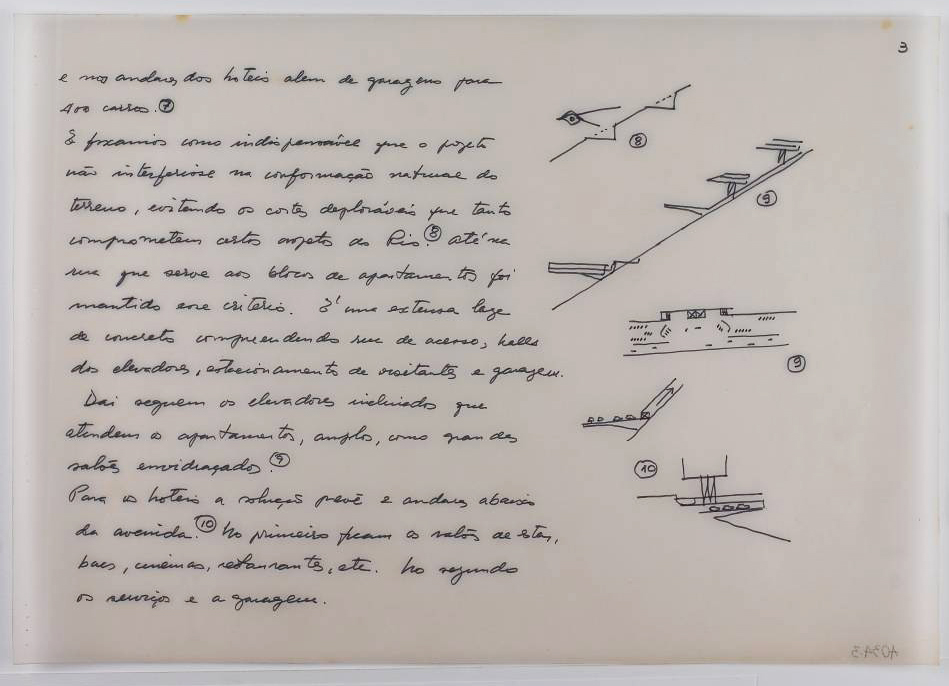 3
e nos andares dos hoteis alem de garagens para
400 carros. 7
E fixamos como indispensável que o projeto
não interferisse na conformação natural do
terreno, evitando os cortes deploráveis que tanto
comprometem certos projetos do Rio. 8 Até na
rua que serve aos blocos de apartamentos foi
mantido esse criterio. É uma extensa laje
de concreto compreendendo rua de acesso, halls
dos elevadores, estacionamento de visitantes e garagem.
Dai seguem os elevadores inclinados que
atendem os apartamentos, amplos, como grandes
salões envidraçados. 9
Para os hoteis a solução prevê andares abaixo
da avenida. 10 No primeiro ficam os salões de estar,
bares, cinemas, restaurantes, etc. No segundo
os serviços e a garagem.
8
9
9
10